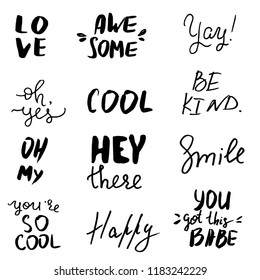 LO
VE
AWE
SOME
Yay!
oh,
yes
COOL
BE
KIND.
OH
MY
HEY
there
Smile
you're
SO
COOL
Happy
YOU
got this
BABE
shutterstock.com · 1183242229